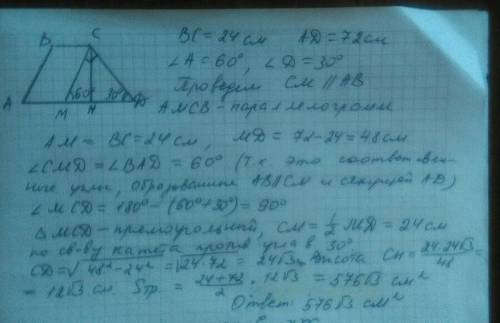 B C
A M N D
60° 30°
BC = 24 см AD = 72 см
∠A = 60°, ∠D = 30°
Проведем CM || AB
AMCB - параллелограмм
AM = BC = 24 см, MD = 72 - 24 = 48 см
∠CMD = ∠BAD = 60° (т.к. это соответствен-
ные углы, образованные AB||CM и секущей AD)
∠MCD = 180° - (60° + 30°) = 90°
△MCD - прямоугольный, CM = 1/2 MD = 24 см
по св-ву катета против угла в 30°
CD = √48² - 24² = √24·72 = 24√3 см высота CH = 24·24√3/48 =
= 12√3 см Sтр. = 24+72/2 · 12√3 = 576√3 см²
Ответ: 576√3 см²